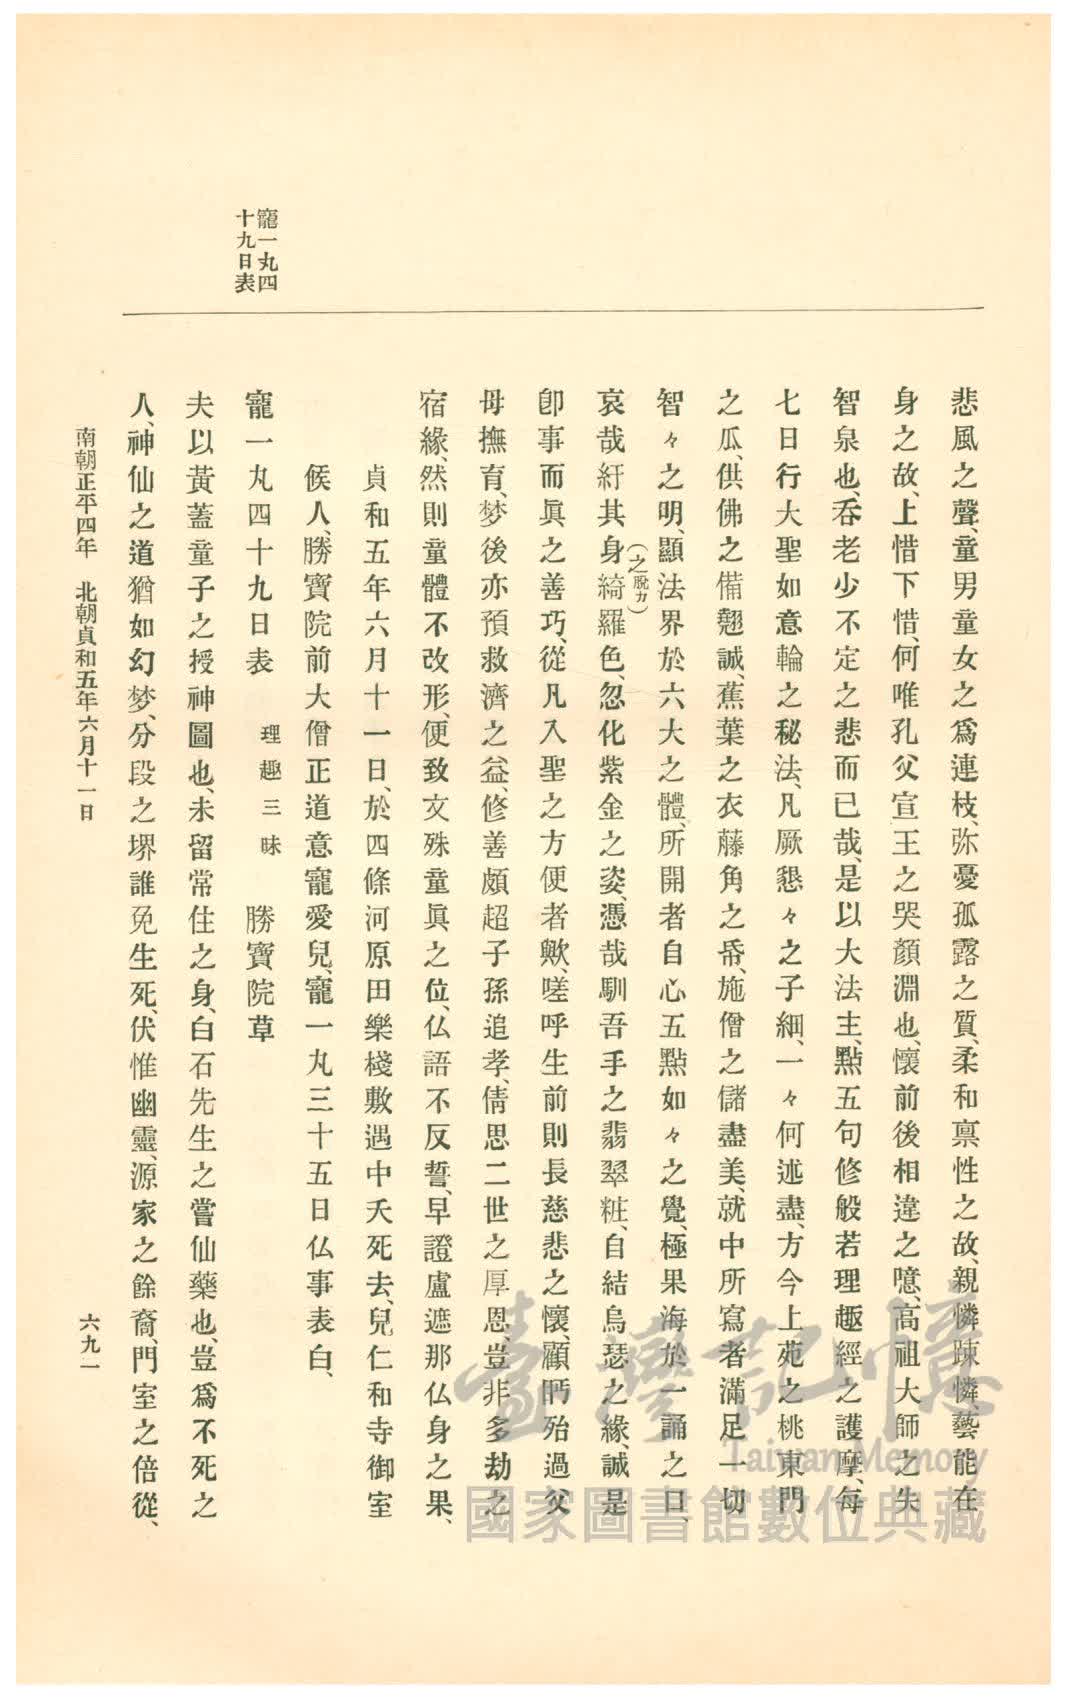 寵一丸四
十九日表
悲風之聲、童男童女之爲連枝、弥憂孤露之質、柔和禀性之故、親憐踈憐、藝能在
身之故、上惜下惜、何唯孔父宣王之哭顏淵也、懷前後相違之噫、高祖大師之失
智泉也、呑老少不定之悲而已哉、是以大法主、點五句修般若理趣經之護摩、每
七日行大聖如意輪之秘法、凡厥懇々之子細、一々何述盡、方今上苑之桃東門
之瓜、供佛之備翹誠、蕉葉之衣藤角之帋、施僧之儲盡美、就中所寫者滿足一切
智々之明、顯法界於六大之體、所開者自心五點如々之覺、極果海於一誦之口、
哀哉紆其身綺羅(之脫カ)色、忽化紫金之姿、憑哉馴吾手之翡翠粧、自結烏瑟之緣、誠是
卽事而眞之善巧、從凡入聖之方便者歟、嗟呼生前則長慈悲之懷、顧眄殆過父
母撫育、梦後亦預救濟之益、修善頗超子孫追孝、倩思二世之厚恩、豈非多劫之
宿緣、然則童體不改形、便致文殊童眞之位、仏語不反誓、早證盧遮那仏身之果、
貞和五年六月十一日、於四條河原田樂棧敷遇中夭死去、兒仁和寺御室
候人、勝寶院前大僧正道意寵愛兒、寵一丸三十五日仏事表白、
寵一丸四十九日表　理趣三昧　勝寶院草
夫以黃蓋童子之授神圖也、未留常住之身、白石先生之嘗仙藥也、豈爲不死之
人、神仙之道猶如幻梦、分段之堺誰免生死、伏惟幽靈、源家之餘裔、門室之倍從、
南朝正平四年　北朝貞和五年六月十一日
六九一
臺灣記憶
Taiwan Memory
國家圖書館數位典藏